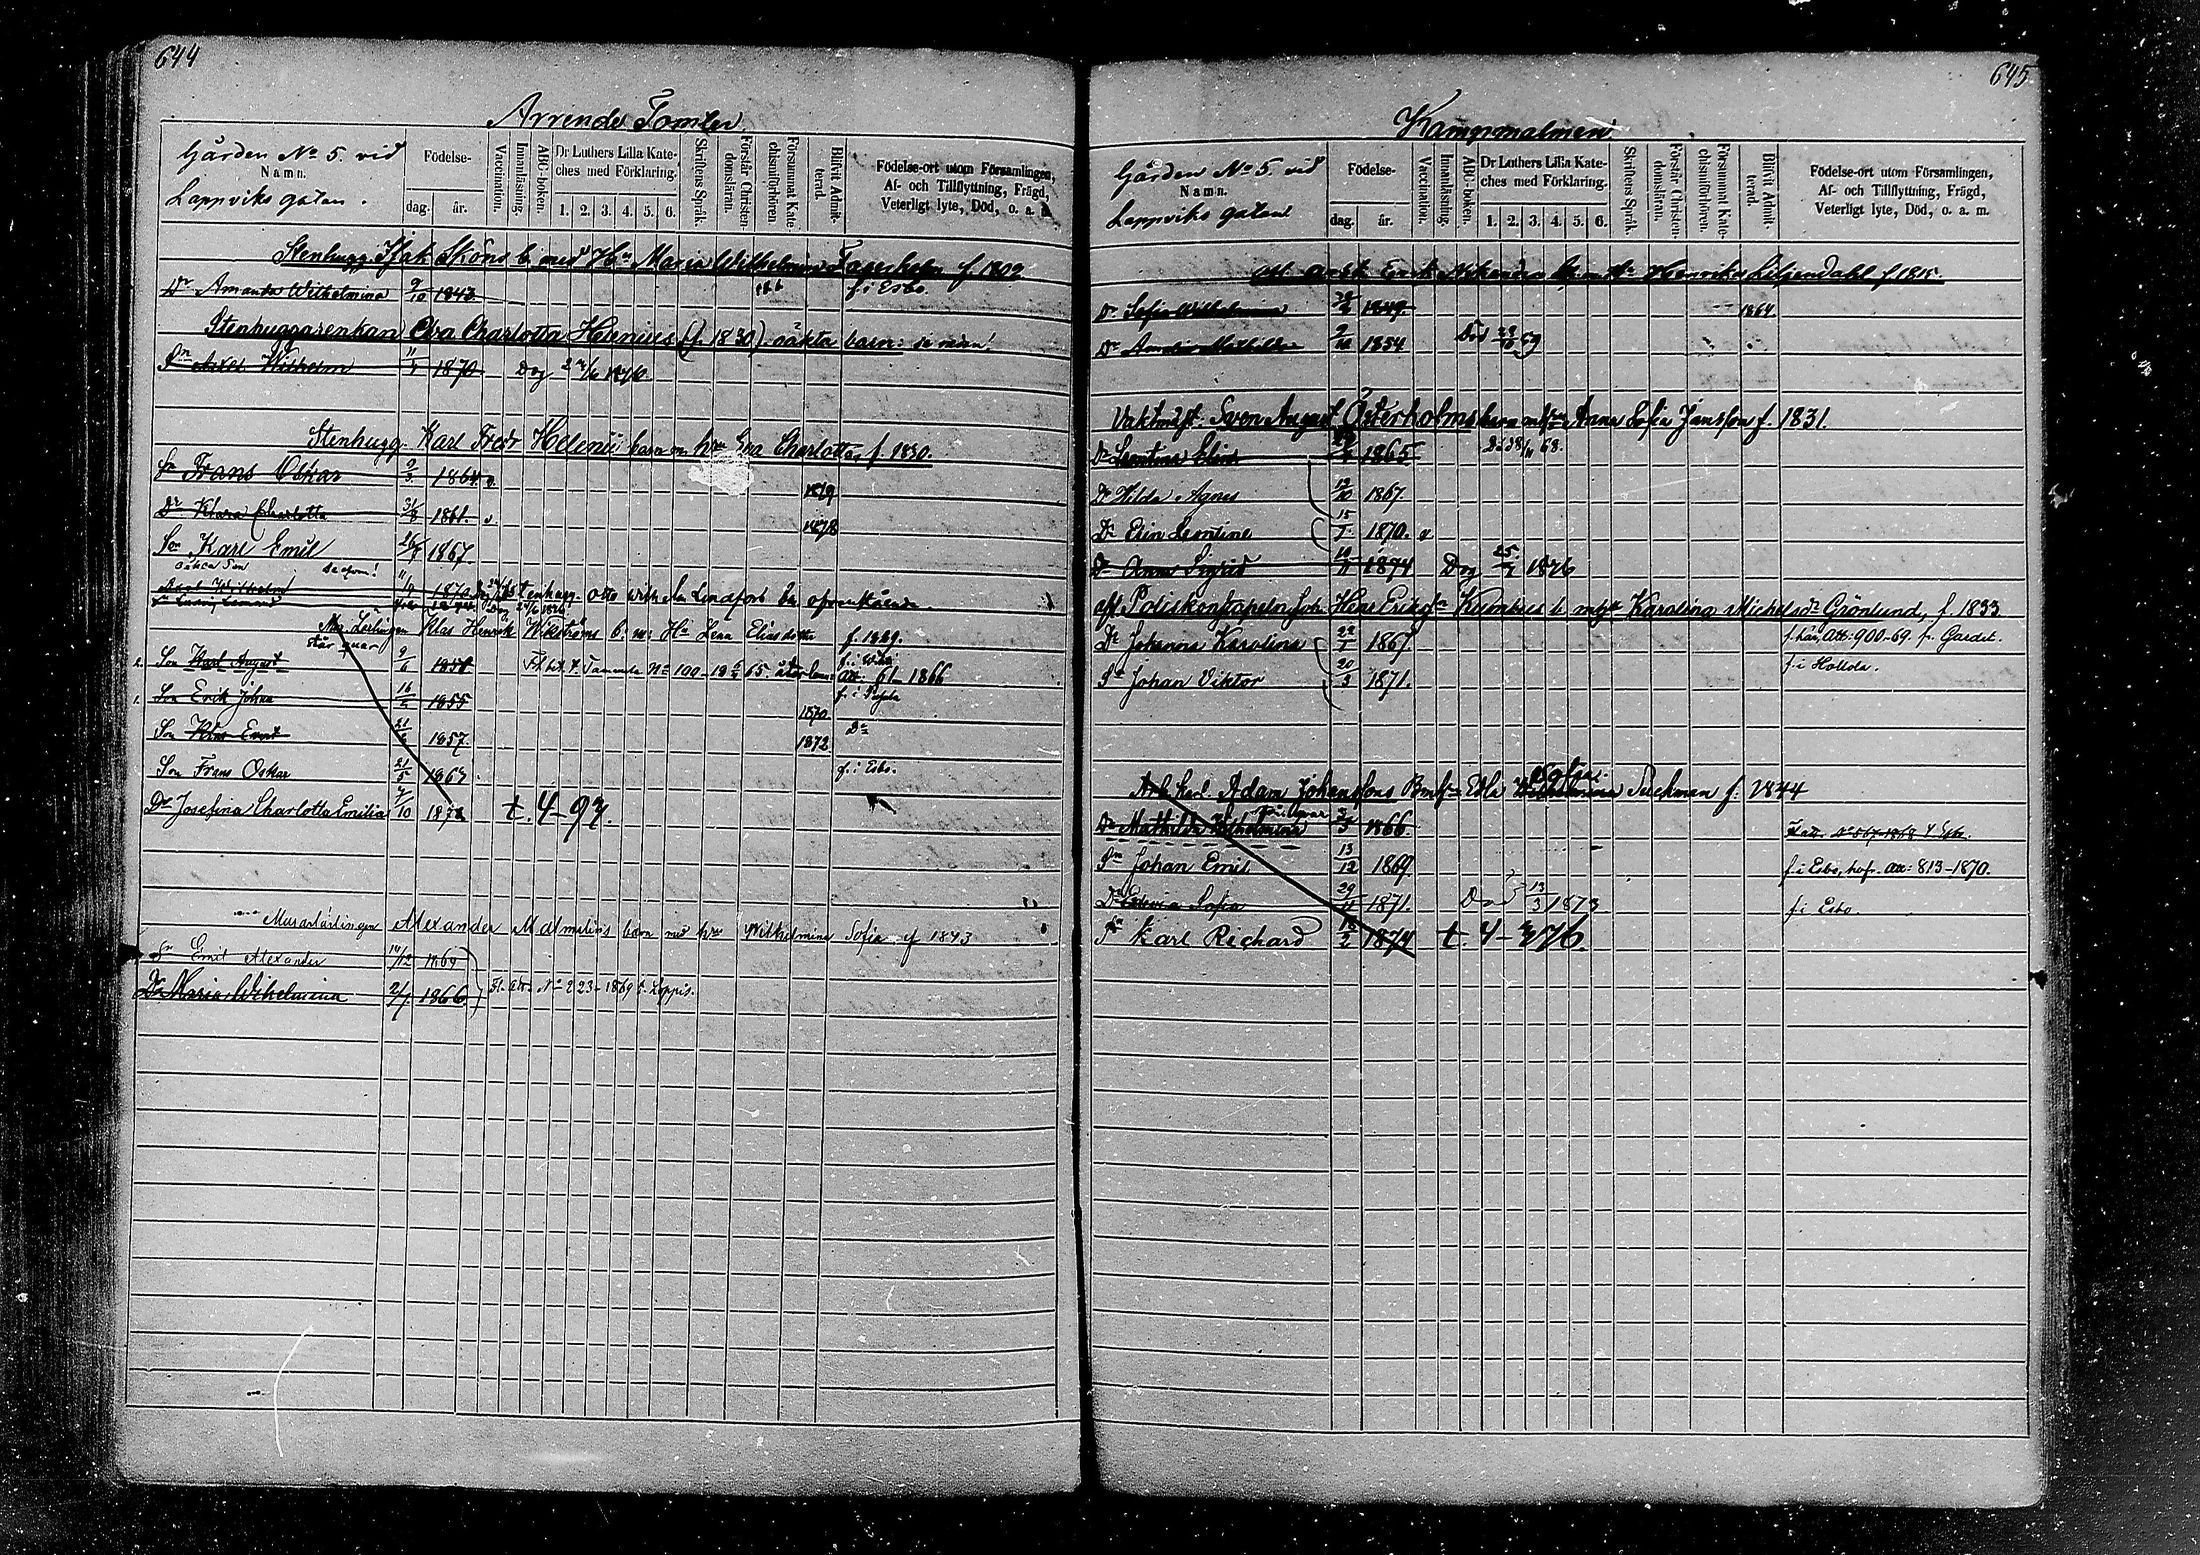 644
Arrende Tomter
Gården No 5. vid
Namn.
Lappviks gatan.
Födelse-
dag. år.
Vaccination.
Innanläsning.
ABC-boken.
Dr Luthers Lilla Kate-
ches med Förklaring.
1. 2. 3. 4. 5. 6.
Skriftens Språk.
Förstår Christen-
domsläran.
Försummat Kate-
chismiförhören.
Blifvit Admit-
terad.
Födelse-ort utom Församlingen,
Af- och Tillflyttning, Frägd,
Veterligt lyte, Död, o. a. m.
Stenhugg. Isak Sköns b. med Hu Maria Wilhelmina Fagerholm f. 1802
Dr Amanda Wilhelmina 9/10 1843 f. i Esbo.
Stenhuggarenkan Eva Charlotta Helenius (f. 1830) oäkta barn: se nedan!
Sn Axel Wilhelm 11/4 1870 Dog 1876.
Stenhugg. Karl Fredr Helenii barn m hru Eva Charlotta, f. 1830.
Sn Frans Oskar 2/3 1864 v. 1879
Dr Klara Charlotta 31/8 1861. v 1878
Son Karl Emil 26/7 1867.
oäkta Son se ofvan!
Axel Wilhelm 1870 Stenhugg. Otto Wilhelm Lindfors
Klas Henrik Wikströms b. m: Hu Lena Eliasdotter f. 1829.
står qvar
2. Son Karl August 9/6 1851 Fl. bet. t. Tammela No 100-1865. återkom: att. 61-1866
1. Son Erik Johan 16/2 1855 1870
Son Klas Ernst 21/6 1857. 1872 Do
Son Frans Oskar 21/5 1863 f. i Esbo.
Dr Josefina Charlotta Emilia 7/10 1872 t. 4-97.
Murarlärlingen Alexander Malmlins barn med hru Wilhelmina Sofia f 1843
Sn Emil Alexander 14/12 1869
Dr Maria Wilhelmina 2/7. 1866 Fl. att. No 223-1869 t. Loppis.
645
Kampmalmen
Gården No 5. vid
Namn.
Lappviks gatan
Födelse-
dag. år.
Vaccination.
Innanläsning.
ABC-boken.
Dr Luthers Lilla Kate-
ches med Förklaring.
1. 2. 3. 4. 5. 6.
Skriftens Språk.
Förstår Christen-
domsläran.
Försummat Kate-
chismiförhören.
Blifvit Admit-
terad.
Födelse-ort utom Församlingen,
Af- och Tillflyttning, Frägd,
Veterligt lyte, Död, o. a. m.
Erik Henrika Liljendahl f 1815.
Dr Sofia Wilhelmina 1849. 1864
Dr Mathilda 2/10 1854 Död 69
Vaktmäst. Sven August Österholms barn m hru Anna Sofia Jansson f. 1831.
Dr Leontina Elin 1865 68.
Dr Hilda Agnes 12/10 1867.
Dr Elin Leontine 15/7. 1870. v
Dr Anna Sigrid 10/11 1874 Dog 25/2 1876
afl. Poliskonstapeln Joh. Hens Eriks Karolina Michelsdr Grönlund, f 1833
Dr Johanna Karolina 22/1 1867. f. här, Att: 900-69. fr. Gardet.
Sn Johan Viktor 20/3 1871. f. i Hollola.
Arb. karl Adam Johanssons Sofia Wilhelmina Tuckman f: 1844
qvar
Dr Mathilda Wilhelmina 1866. Fl. att. No 567-1868 t Esbo.
Sn Johan Emil 13/12 1869. f. i Esbo, hofr. Att: 813-1870.
Dr Edvina Sofia 29/11 1871. Död 13/3 1873 f. i Esbo.
Sn Karl Richard 12/2 1874 t. 4-376.